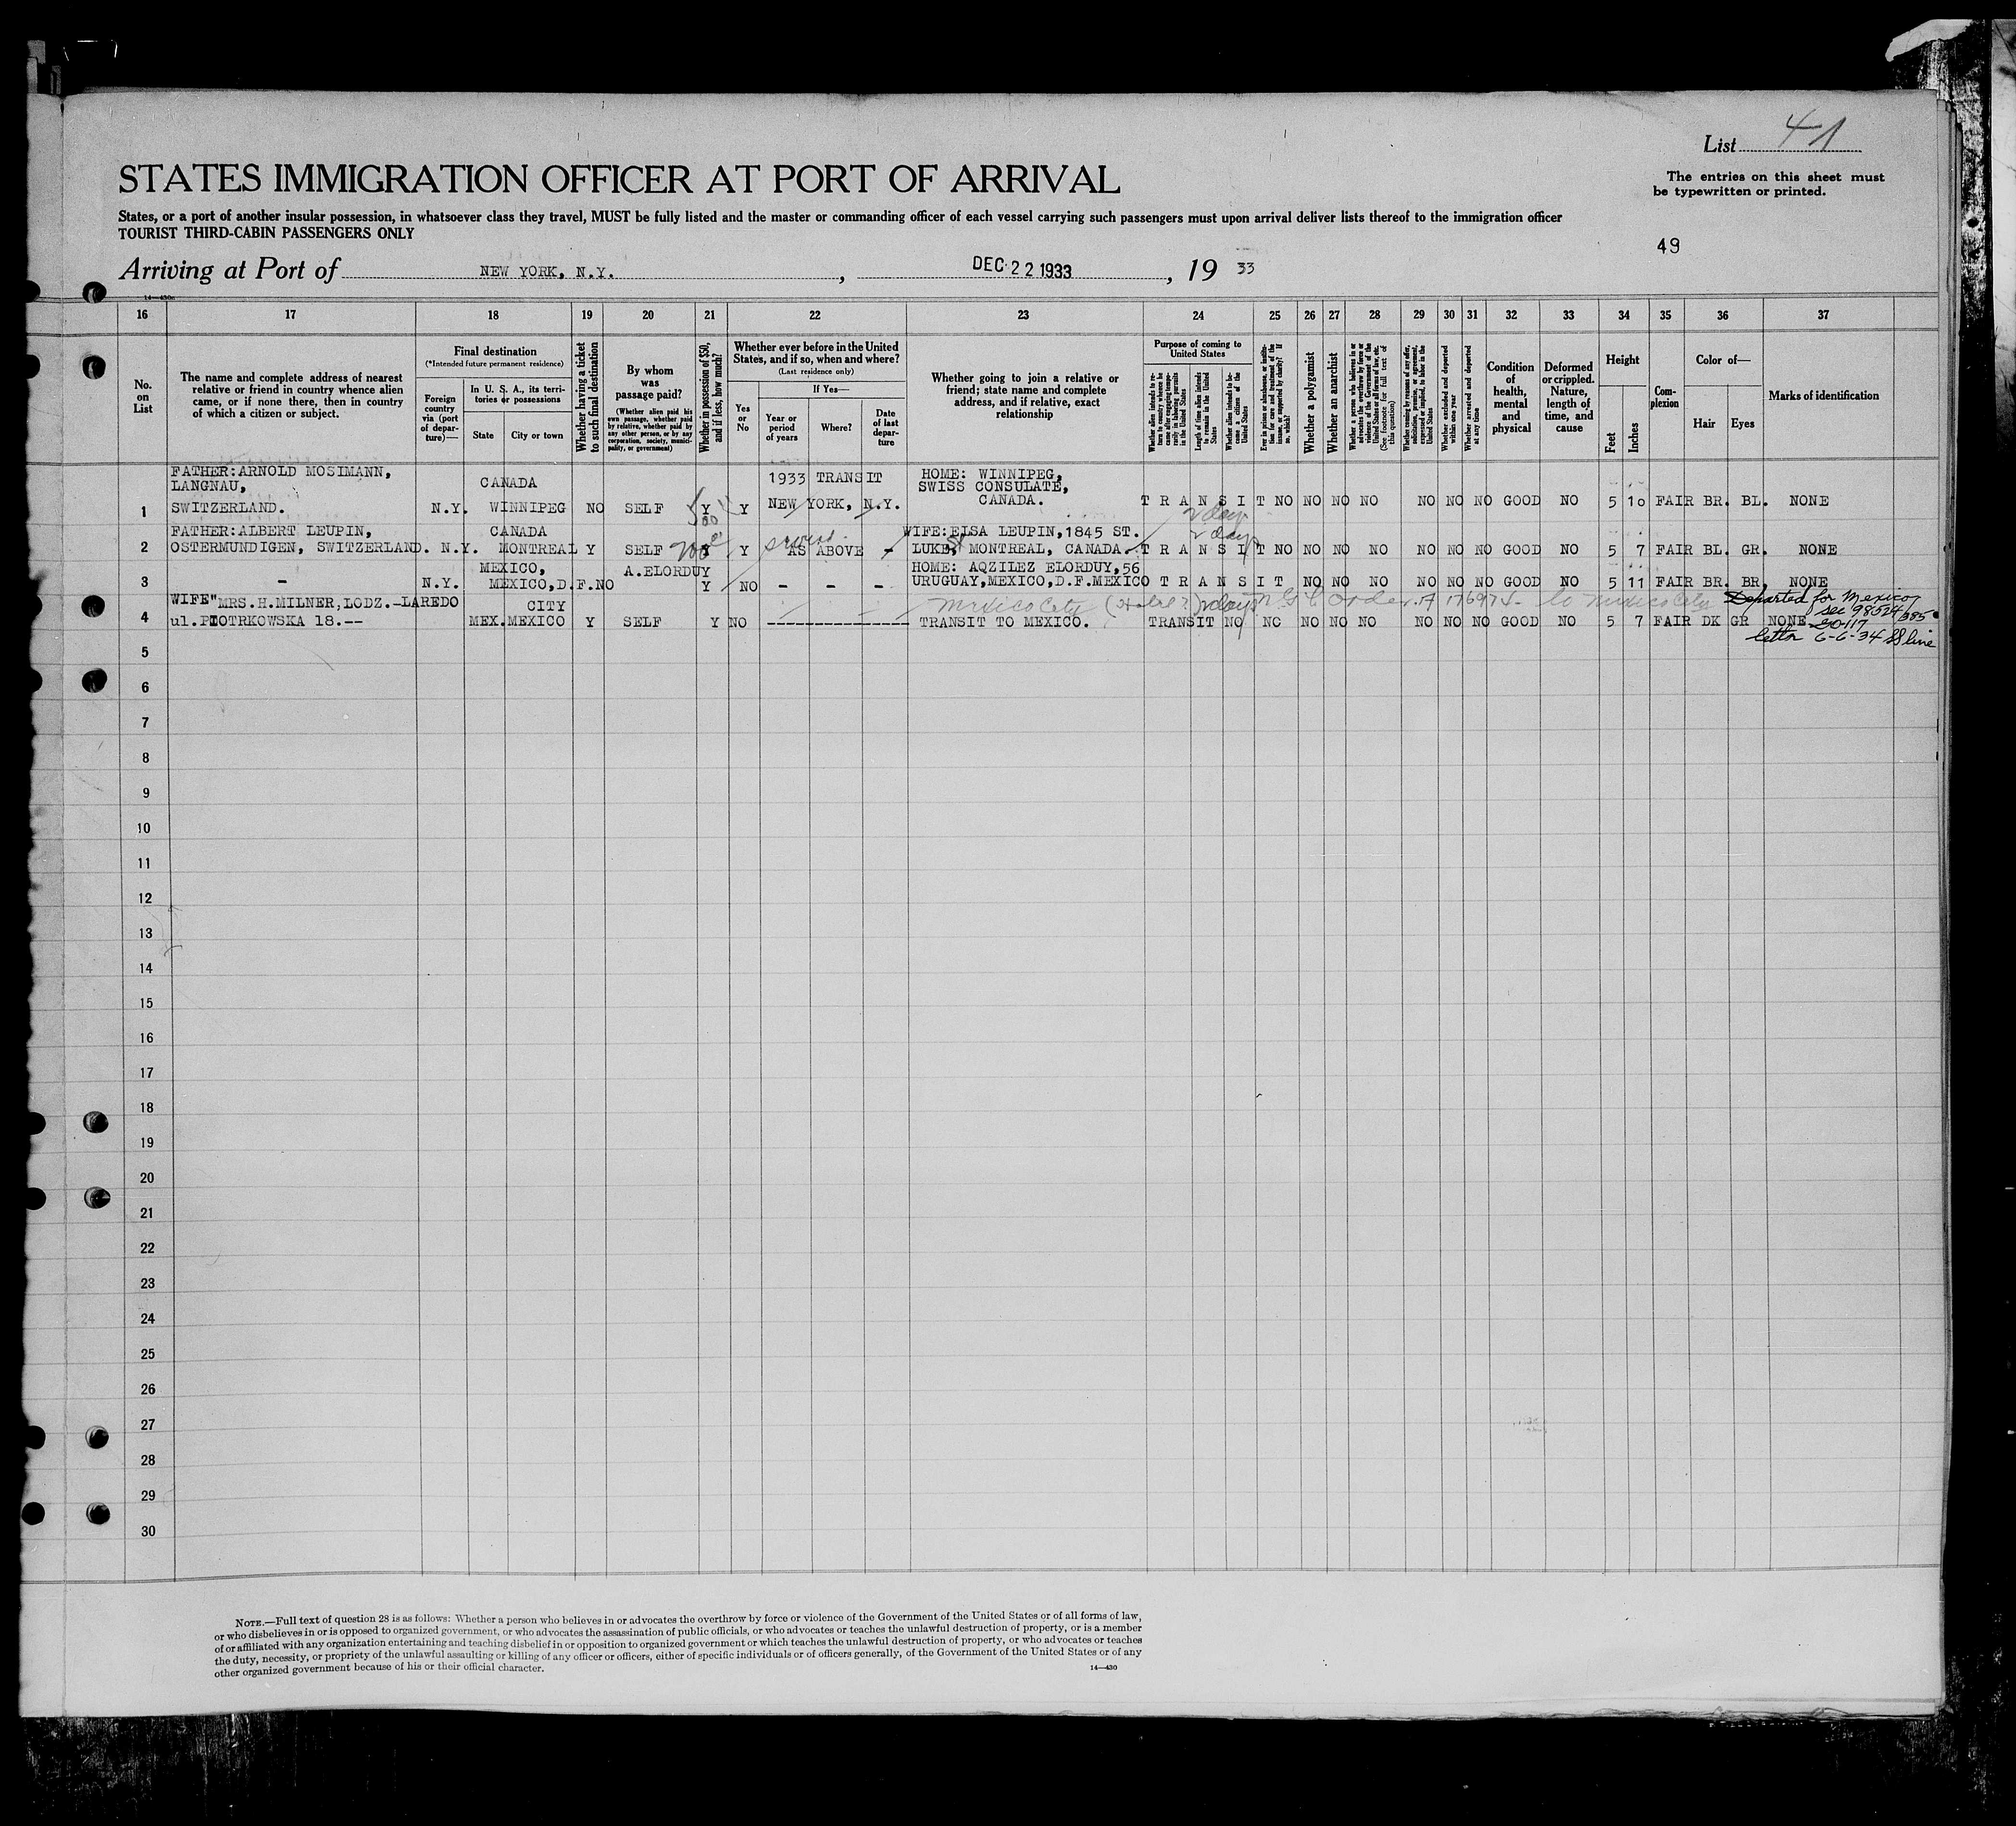 List 41
STATES IMMIGRATION OFFICER AT PORT OF ARRIVAL
The entries on this sheet must
be typewritten or printed.
States, or a port of another insular possession, in whatsoever class they travel, MUST be fully listed and the master or commanding officer of each vessel carrying such passengers must upon arrival deliver lists thereof to the immigration officer
TOURIST THIRD-CABIN PASSENGERS ONLY
49
Arriving at Port of NEW YORK, N.Y., DEC 22 1933, 19 33
16 17 18 19 20 21 22 23 24 25 26 27 28 29 30 31 32 33 34 35 36 37
No. on List
The name and complete address of nearest
relative or friend in country whence alien
came, or if none there, then in country
of which a citizen or subject.
Final destination
(*Intended future permanent residence)
Foreign country via (port of departure)—
In U. S. A., its territories or possessions
State
City or town
Whether having a ticket to such final destination
By whom was passage paid?
(Whether alien paid his own passage, whether paid by relative, whether paid by any other person, or by any corporation, society, municipality, or government)
Whether in possession of $50, and if less, how much?
Whether ever before in the United States, and if so, when and where?
(Last residence only)
Yes or No
If Yes—
Year or period of years
Where?
Date of last departure
Whether going to join a relative or
friend; state name and complete
address, and if relative, exact
relationship
Purpose of coming to United States
Whether alien intends to return to country whence he came after engaging temporarily in laboring pursuits in the United States
Length of time alien intends to remain in the United States
Whether alien intends to become a citizen of the United States
Ever in prison or almshouse, or institution for care and treatment of the insane, or supported by charity? If so, which?
Whether a polygamist
Whether an anarchist
Whether a person who believes in or advocates the overthrow by force or violence of the Government of the United States or all forms of law, etc. (See footnote for full text of this question)
Whether coming by reasons of any offer, solicitation, promise, or agreement, expressed or implied, to labor in the United States
Whether excluded and deported within one year
Whether arrested and deported at any time
Condition of health, mental and physical
Deformed or crippled. Nature, length of time, and cause
Height
Feet
Inches
Complexion
Color of—
Hair
Eyes
Marks of identification
FATHER:ARNOLD MOSIMANN, CANADA 1933 TRANSIT HOME: WINNIPEG,
LANGNAU, SWISS CONSULATE,
1 SWITZERLAND. N.Y. WINNIPEG NO SELF Y Y NEW YORK, N.Y. CANADA. TRANSIT NO NO NO NO NO NO NO GOOD NO 5 10 FAIR BR. BL. NONE
2 days
FATHER:ALBERT LEUPIN, CANADA WIFE:ELSA LEUPIN,1845 ST. 2 days
2 OSTERMUNDIGEN, SWITZERLAND. N.Y. MONTREAL Y SELF Y Y AS ABOVE - LUKE, St MONTREAL, CANADA. TRANSIT NO NO NO NO NO NO NO GOOD NO 5 7 FAIR BL. GR. NONE
MEXICO, A.ELORDUY HOME: AQZILEZ ELORDUY,56
3 - N.Y. MEXICO,D.F. NO Y NO - - - URUGUAY,MEXICO,D.F.MEXICO TRANSIT NO NO NO NO NO NO GOOD NO 5 11 FAIR BR. BR. NONE
WIFE"MRS.H.MILNER,LODZ.-LAREDO CITY Mexico City 2 days order to Mexico City Departed for Mexico
4 ul.PIOTRKOWSKA 18.-- MEX. MEXICO Y SELF Y NO -------------- TRANSIT TO MEXICO. TRANSIT NO NO NO NO NO NO NO NO GOOD NO 5 7 FAIR DK GR NONE
see 98524/385
letter 6-6-34 SS line
5
6
7
8
9
10
11
12
13
14
15
16
17
18
19
20
21
22
23
24
25
26
27
28
29
30
NOTE.—Full text of question 28 is as follows: Whether a person who believes in or advocates the overthrow by force or violence of the Government of the United States or of all forms of law,
or who disbelieves in or is opposed to organized government, or who advocates the assassination of public officials, or who advocates or teaches the unlawful destruction of property, or is a member
of or affiliated with any organization entertaining and teaching disbelief in or opposition to organized government or which teaches the unlawful destruction of property, or who advocates or teaches
the duty, necessity, or propriety of the unlawful assaulting or killing of any officer or officers, either of specific individuals or of officers generally, of the Government of the United States or of any
other organized government because of his or their official character.
14—430